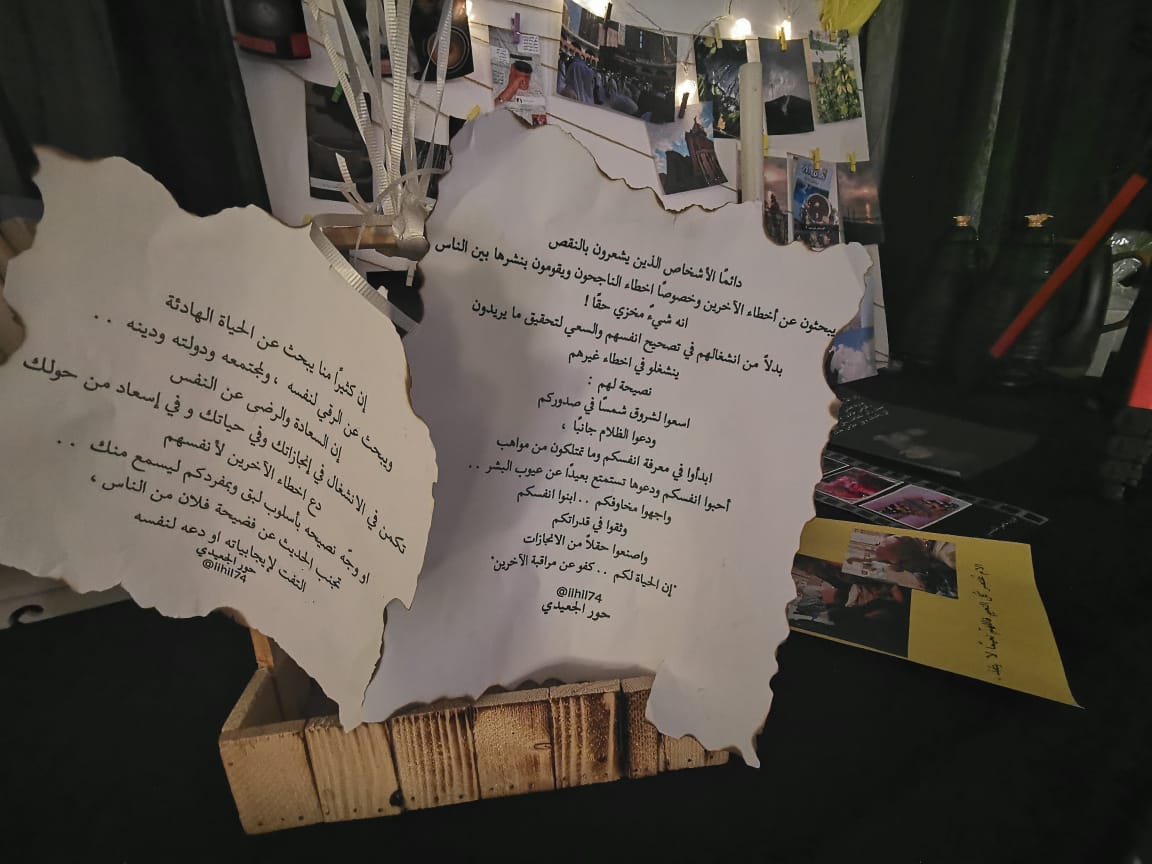 دائمًا الأشخاص الذين يشعرون بالنقص
يبحثون عن أخطاء الآخرين وخصوصًا اخطاء الناجحون ويقومون بنشرها بين الناس
انه شيءً مخزي حقًا !
بدلاً من انشغالهم في تصحيح انفسهم والسعي لتحقيق ما يريدون
ينشغلو في اخطاء غيرهم
نصيحة لهم :
اسعوا لشروق شمسًا في صدوركم
ودعوا الظلام جانبًا ،
ابدأوا في معرفة انفسكم وما تمتلكون من مواهب
أحبوا انفسكم ودعوها تستمتع بعيدًا عن عيوب البشر ..
واجهوا مخاوفكم .. ابنوا انفسكم
وثقوا في قدراتكم
واصنعوا حقلاً من الانجازات
"إن الحياة لكم .. كفو عن مراقبة الآخرين"
@iihil74
حور الجعيدي
إن كثيرًا منا يبحث عن الحياة الهادئة
ويبحث عن الرقي لنفسه ، ولمجتمعه ودولته ودينه ..
إن السعادة والرضى عن النفس
تكمن في الانشغال في إنجازاتك وفي حياتك و في إسعاد من حولك
دع اخطاء الآخرين لأنفسهم
او وجّه نصيحه بأسلوب لبق وبمفردكم ليسمع منك ..
تجنب الحديث عن فضيحة فلان من الناس ،
التفت لإيجابياته او دعه لنفسه
حور الجعيدي
@iihil74